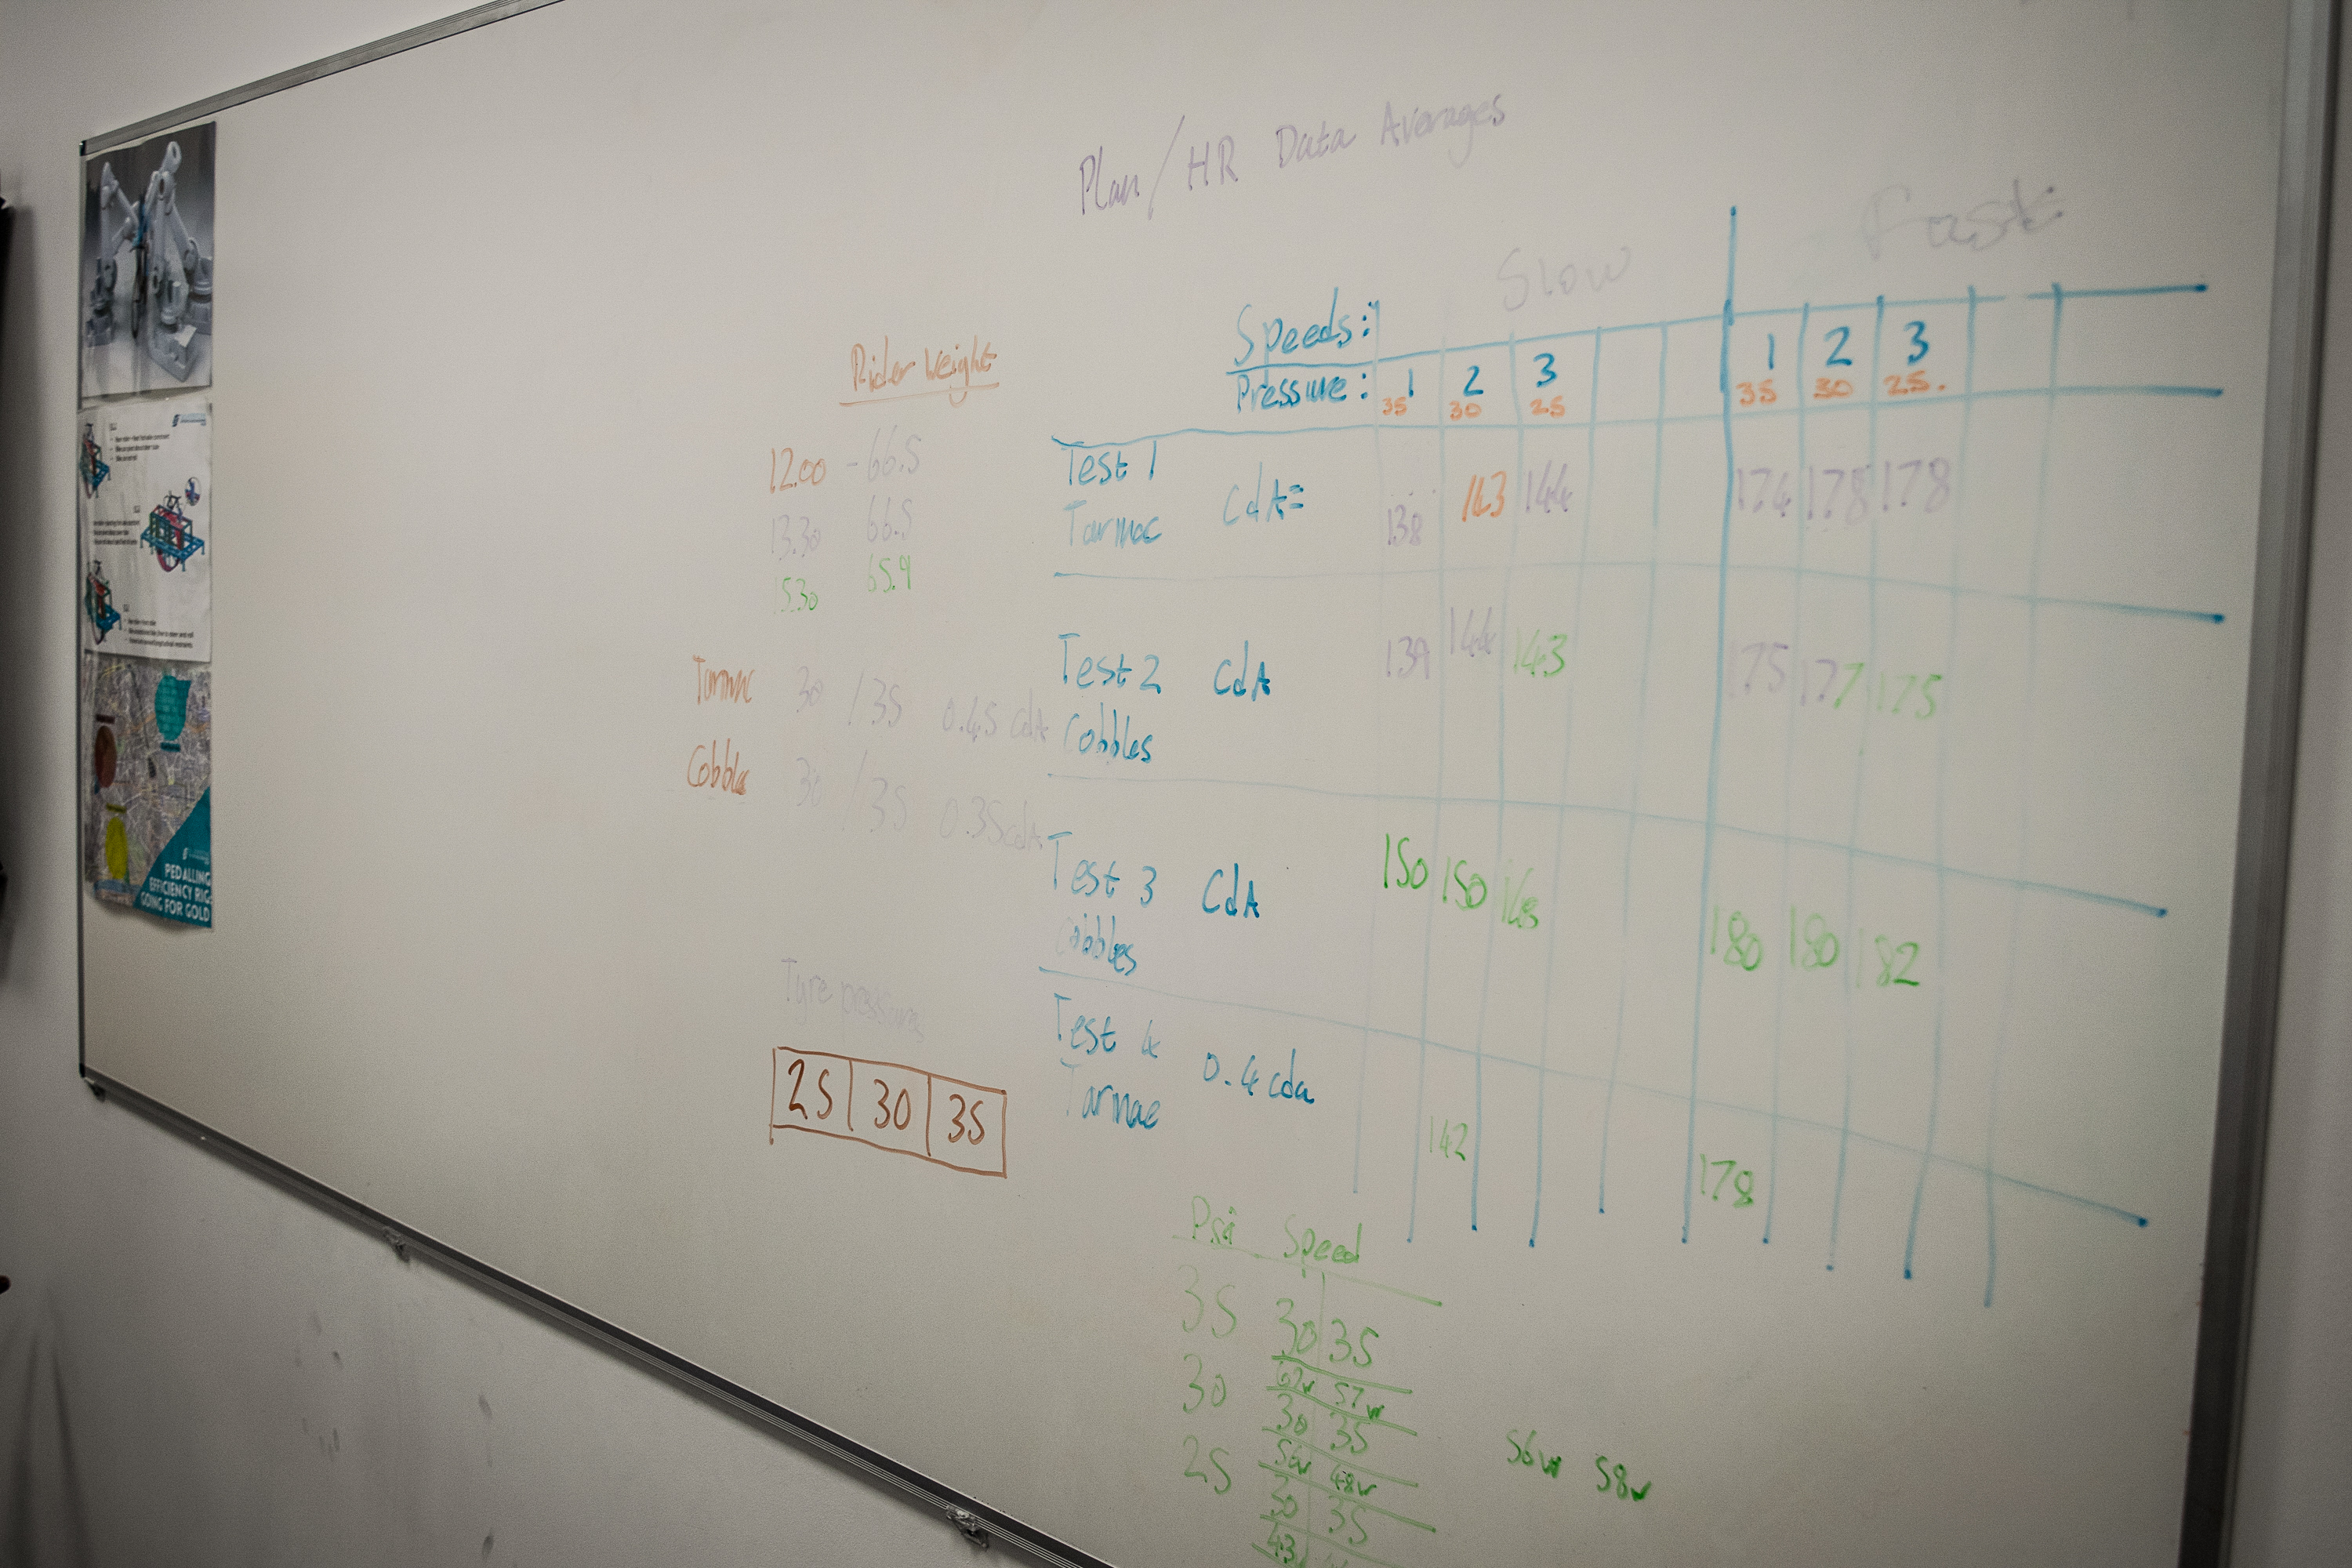 Plan / HR Data Averages
Slow
Fast
Speeds:
Pressure: 1 2 3 1 2 3
35 30 25 35 30 25.
Test 1 CdA= 138 143 144 174 178 178
Tarmac
Test 2 CdA 139 144 143 175 177 175
Cobbles
Test 3 CdA 150 150 180 180 182
Cobbles
Test 4 0.4 cda
Tarmac
142 178
Rider Weight
12.00 - 66.5
13.30 66.5
15.30 65.9
Tarmac 30 / 35 0.45 cdA
Cobble 30 / 35 0.35 cdA
Tyre pressure
25 30 35
Psi Speed
35 30 35
57w
30 30 35
56w 48w
25 30 35
43
56w 58w
PEDALLING
EFFICIENCY RIG
GOING FOR GOLD